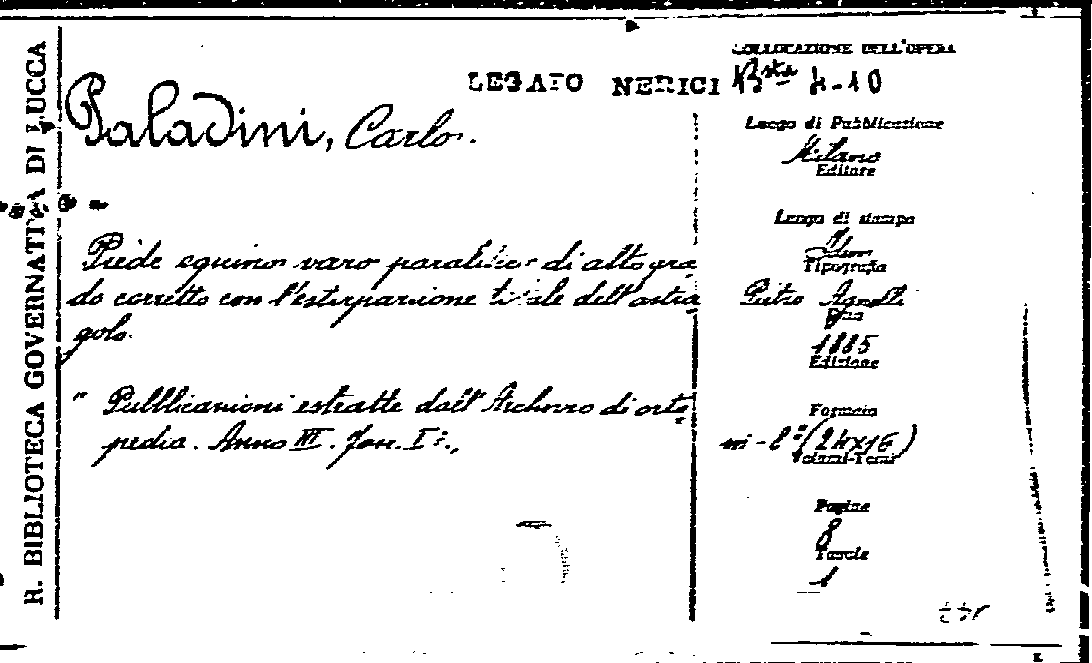 R. BIBLIOTECA GOVERNATIVA DI LUCCA
Paladini, Carlo.
LEGATO NERICI
COLLOCAZIONE DELL'OPERA
Bsta 4-10
Piede equino varo paralitico di alto gra
do corretto con l'estirpazione totale dell'astra
golo.
" Pubblicazioni estratte dall'Archivio di orto
pedia. Anno III. Fasc. I°.,
Luogo di Pubblicazione
Milano
Editore
Luogo di stampa
Idem
Tipografia
Pietro Agnelli
1885
Edizione
Formato
in-8° (24x16)
Volumi-Tomi
Pagine
8
Tavole
1